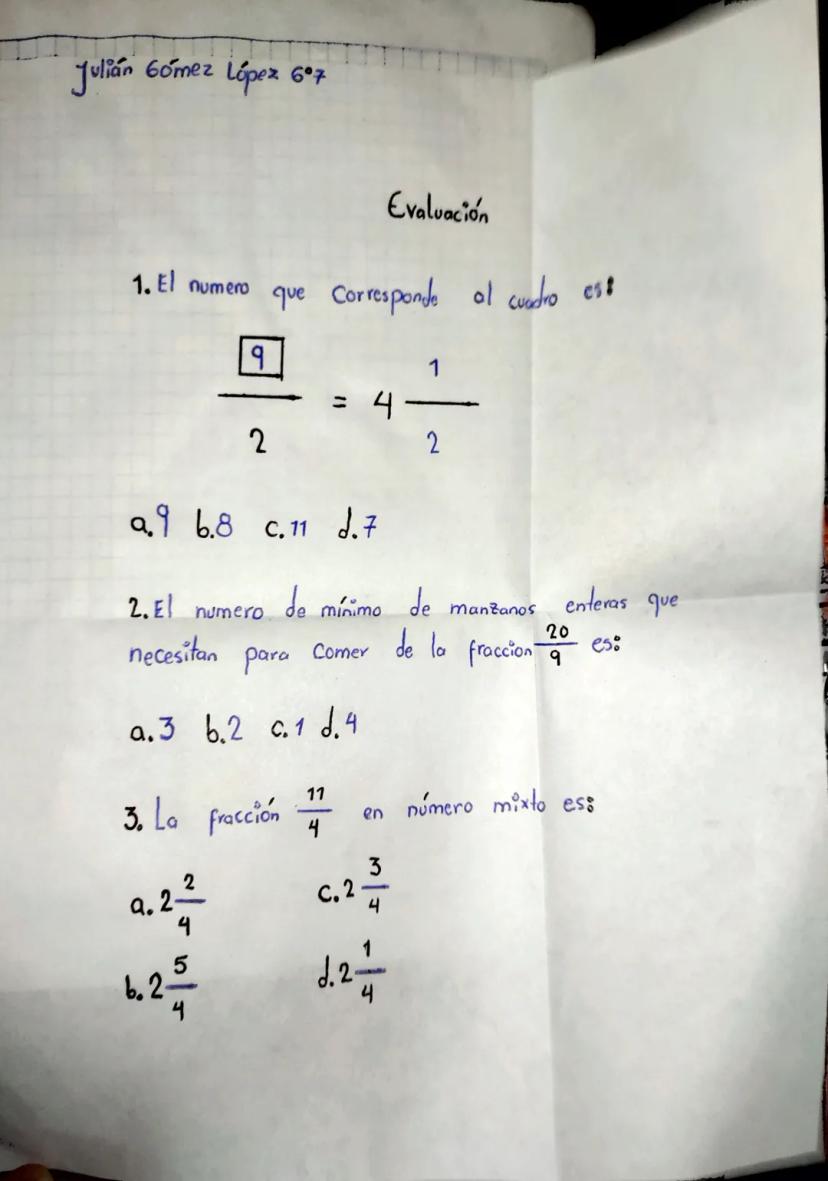 Julián Gómez López 6°7
Evaluación
1. El numero que corresponde al cuadro es:
9/2 = 4 1/2
a. 9 b. 8 c. 11 d. 7
2. El numero de mínimo de manzanos enteras que
necesitan para comer de la fraccion 20/9 es:
a. 3 b. 2 c. 1 d. 4
3. La fracción 11/4 en número mixto es:
a. 2 2/4 c. 2 3/4
b. 2 5/4 d. 2 1/4